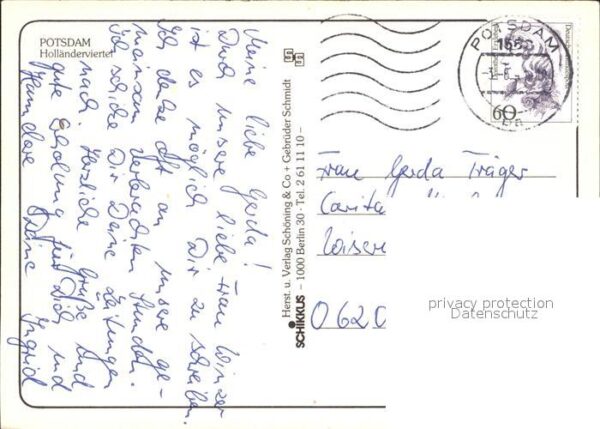 POTSDAM
Holländerviertel
Meine liebe Gerda!
Durch unsere liebe Frau Winzer
ist es möglich Dir zu schreiben.
Ich denke oft an unsere ge-
meinsam verbrachten Stunden.
Ich schicke Dir Deine Zeitungen
mit. Herzliche Grüße und
gute Erholung für Dich und
Hannelore Deine Ingrid
Herst. u. Verlag Schöning & Co + Gebrüder Schmidt
SCHIKKUS – 1000 Berlin 30 · Tel. 2 61 11 10 –
POTSDAM
60
Frau Gerda Träger
Carita
Wiser
0620
privacy protection
Datenschutz